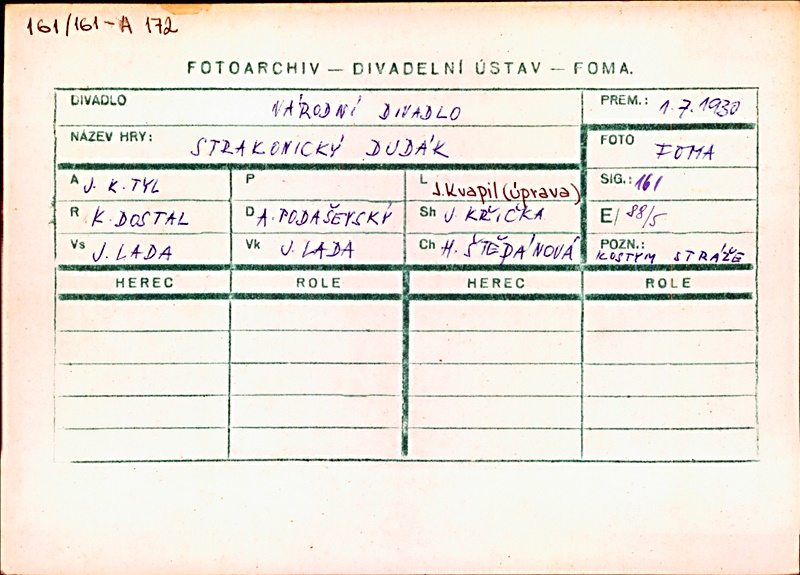 161/161-A 172
FOTOARCHIV — DIVADELNÍ ÚSTAV — FOMA.
DIVADLO NÁRODNÍ DIVADLO PREM.: 1.7.1930
NÁZEV HRY: STRAKONICKÝ DUDÁK FOTO FOMA
A J. K. TYL P L J. Kvapil (úprava) SIG.: 161
R K. DOSTAL D A. PODAŠEVSKÝ Sh J. KŘIČKA E/ 88/5
Vs J. LADA Vk J. LADA Ch H. ŠTĚPÁNOVÁ POZN.: KOSTYM STRÁŽE
HEREC ROLE HEREC ROLE